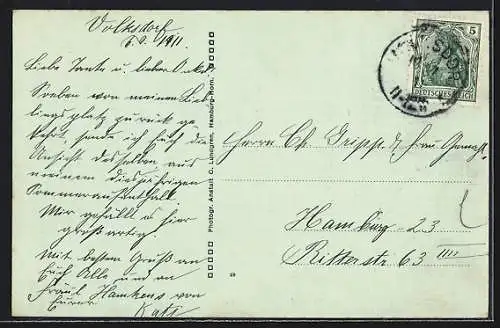 Volksdorf
1911
Liebe Tante u. lieber Onkel
Soeben von meinem Lieb-
lingsplatz zurück ge-
kehrt, sende ich Euch die
Ansicht desselben aus
meinem diesjährigen
Sommeraufenthalt.
Mir gefällt's hier
großartig
Mit bestem Gruß an
Euch Alle und an
Fräul. Hamkens von
Eurer
Photogr. Anstalt C. Lundgren, Hamburg-Horn.
5
DEUTSCHES REICH
Herrn Ch. Tripp & Frau Gemahl.
Hamburg 23
Ritterstr 63 III